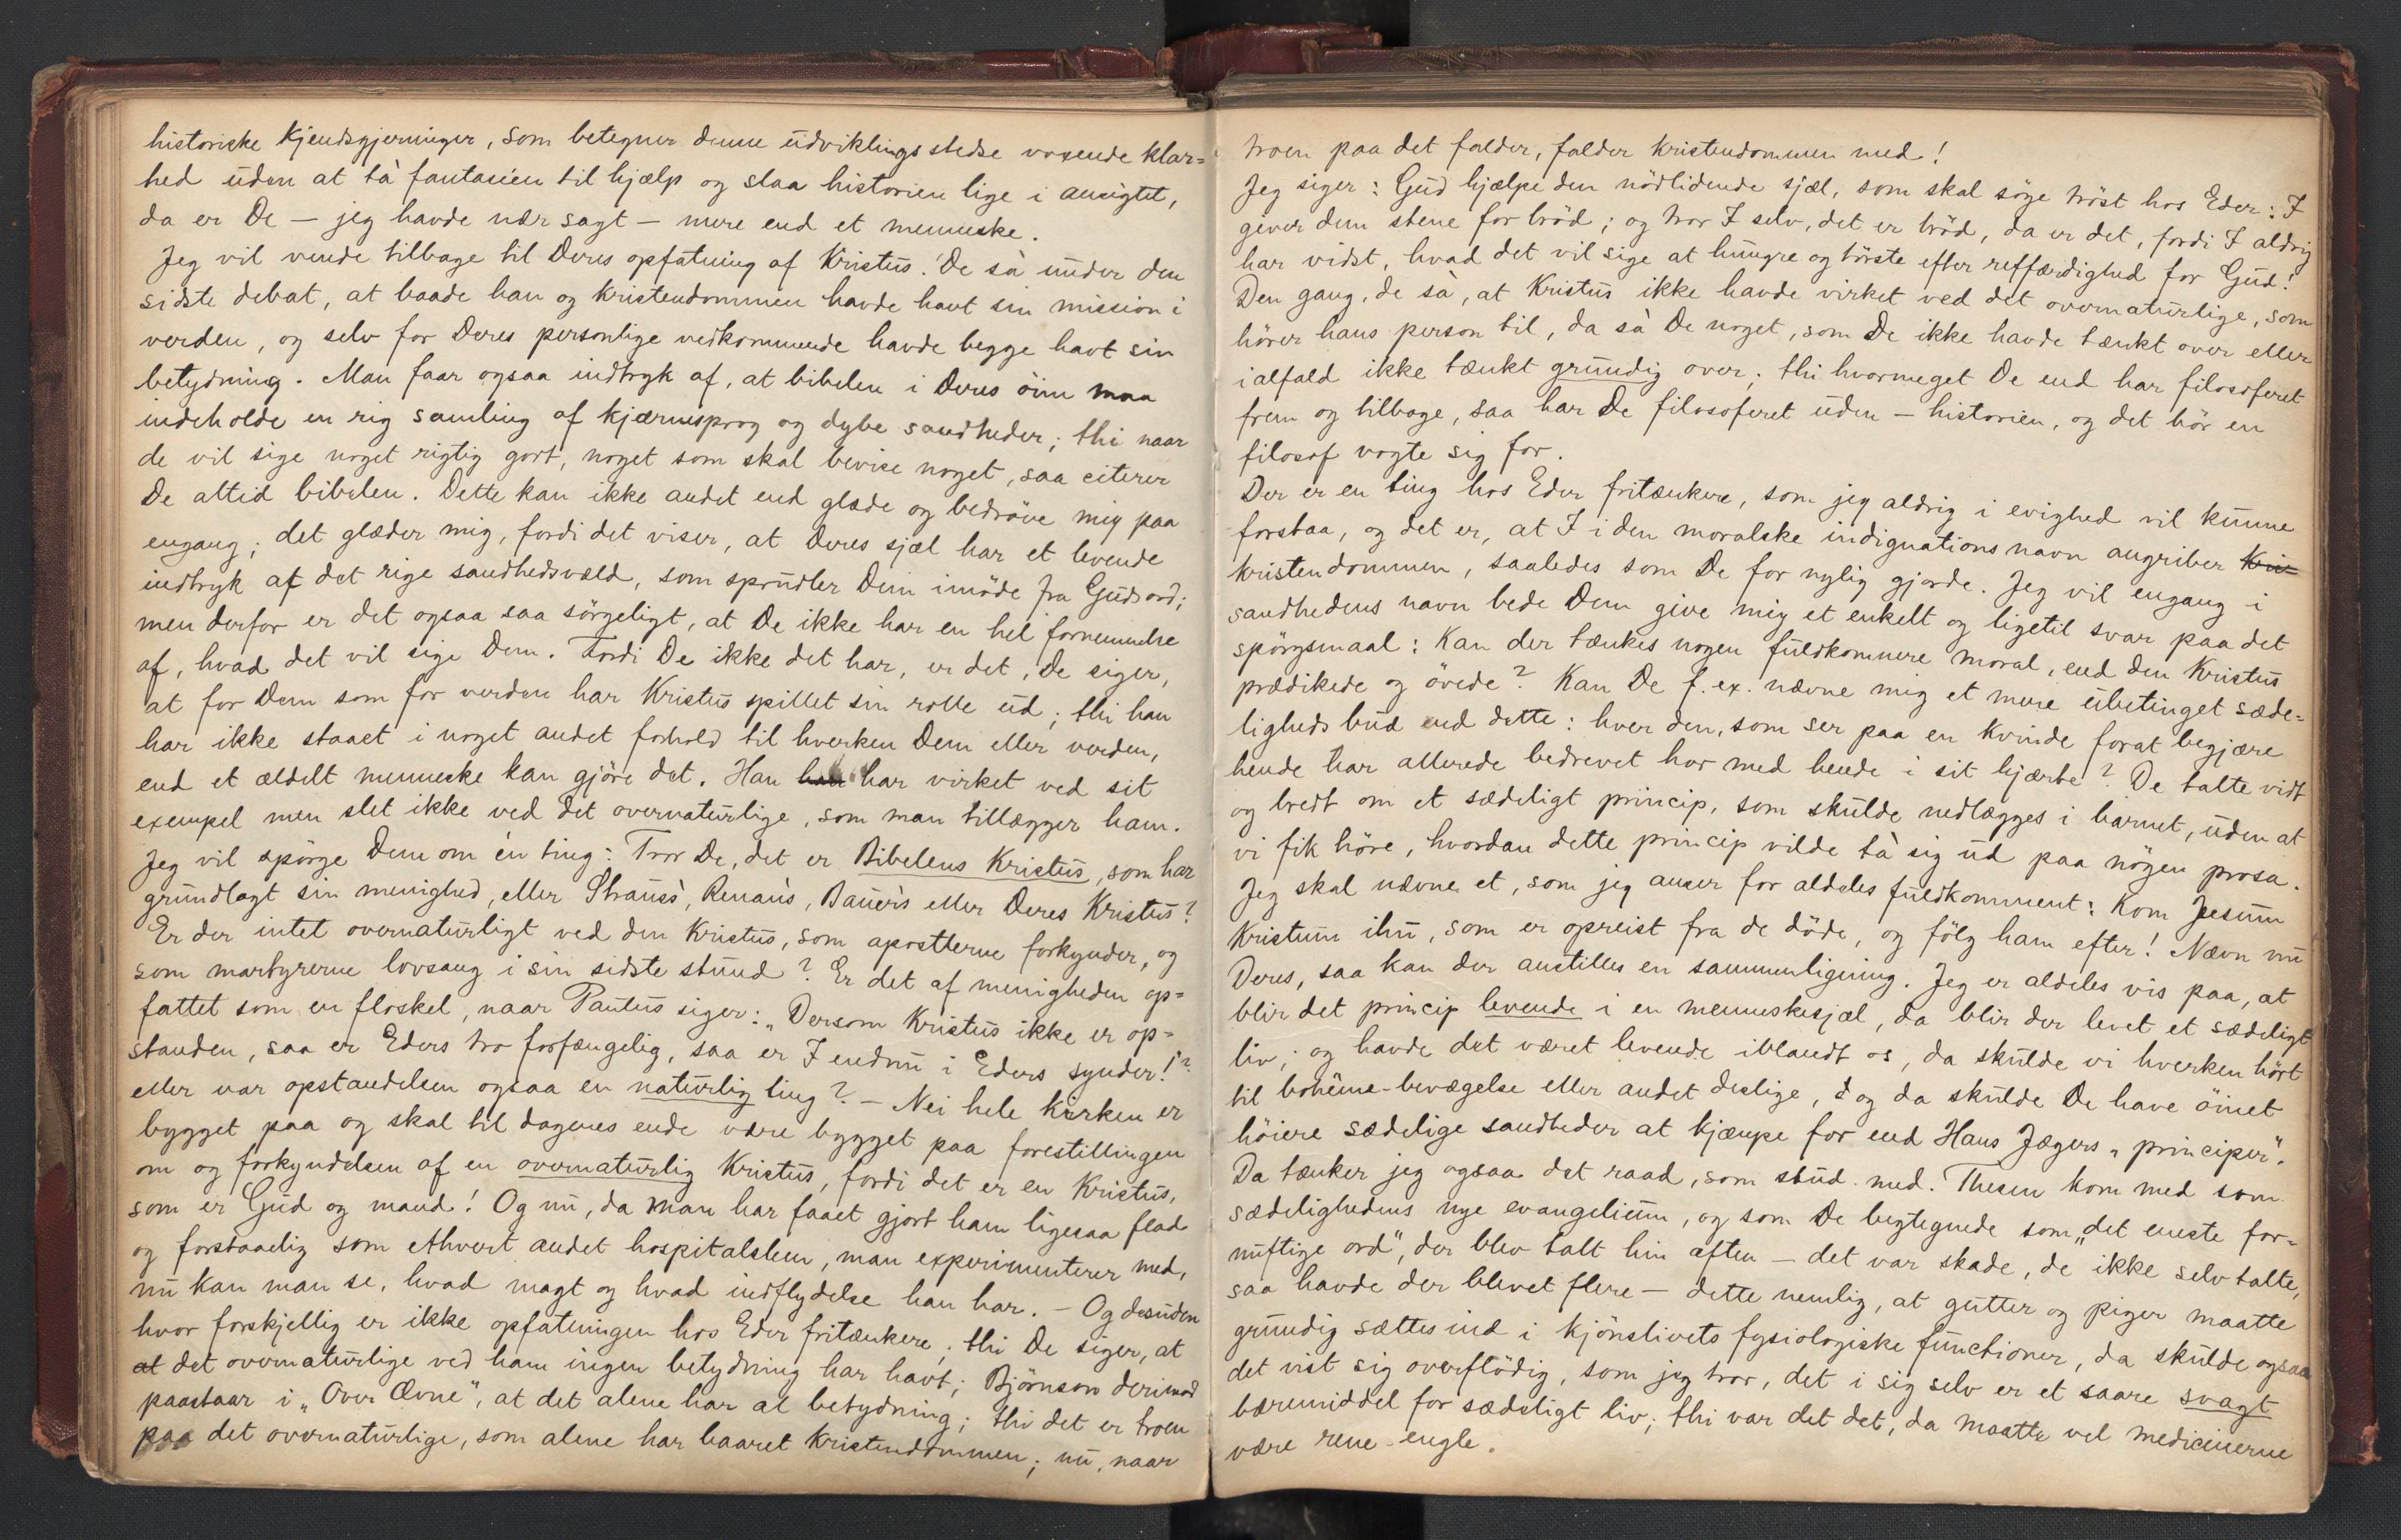 historiske kjendsgjerninger, som betegner denne udviklings stedse voxende klar=
hed uden at tà fantasien til hjælp og slaa historien lige i ansigtet,
da er De — jeg havde nær sagt — mere end et menneske.
Jeg vil vende tilbage til Deres opfatning af Kristus. De sà under den
sidste debat, at baade han og kristendommen havde havt sin mission i
verden, og selv for Deres personlige vedkommende havde begge havt sin
betydning. Man faar ogsaa indtryk af, at bibelen i Deres öine maa
indeholde en rig samling af kjærnesprog og dybe sandheder; thi naar
de vil sige noget rigtig godt, noget som skal bevise noget, saa citerer
De altid bibelen. Dette kan ikke andet end glæde og bedröve mig paa
engang; det glæder mig, fordi det viser, at Deres sjæl har et levende
indtryk af det rige sandhedsvæld, som sprudler Dem imöde fra Guds ord;
men derfor er det ogsaa saa sörgeligt, at De ikke har en hel fornemmelse
af, hvad det vil sige Dem. Fordi De ikke det har, er det, De siger,
at for Dem som for verden har Kristus spillet sin rolle ud; thi han
har ikke staaet i noget andet forhold til hverken Dem eller verden,
end et ædelt menneske kan gjöre det. Han han har virket ved sit
exempel men slet ikke ved det overnaturlige, som man tillægger ham.
Jeg vil spörge Dem om én ting: Tror De, det er Bibelens Kristus, som har
grundlagt sin menighed, eller Strauss's, Renan's, Bauer's eller Deres Kristus?
Er der intet overnaturligt ved den Kristus, som apostlerne forkynder, og
som martyrerne lovsang i sin sidste stund? Er det af menigheden op=
fattet som en floskel, naar Paulus siger: „Dersom Kristus ikke er op=
standen, saa er Eders tro forfængelig, saa er I endnu i Eders synder!"?
eller var opstandelsen ogsaa en naturlig ting? — Nei hele kirken er
bygget paa og skal til dagenes ende være bygget paa forestillingen
om og forkyndelsen af en overnaturlig Kristus, fordi det er en Kristus,
som er Gud og mand! Og nu, da man har faaet gjort ham ligesaa flad
og forstaaelig som ethvert andet hospitalslem, man experimenterer med,
nu kan man se, hvad magt og hvad indflydelse han har. — Og desuden
hvor forskjellig er ikke opfatningen hos Eder fritænkere; thi De siger, at
at det overnaturlige ved ham ingen betydning har havt; Björnson derimod
paastaar i „Over Ævne", at det alene har al betydning; thi det er troen
paa det overnaturlige, som alene har baaret kristendommen; nu, naar
troen paa det falder, falder kristendommen med!
Jeg siger: Gud hjælpe den nödlidende sjæl, som skal söge tröst hos Eder: I
giver dem stene for bröd; og tror I selv, det er bröd, da er det, fordi I aldrig
har vidst, hvad det vil sige at hungre og törste efter retfærdighed for Gud!
Den gang, de sà, at Kristus ikke havde virket ved det overnaturlige, som
hörer hans person til, da sà De noget, som De ikke havde tænkt over eller
ialfald ikke tænkt grundig over; thi hvormeget De end har filosoferet
frem og tilbage, saa har De filosoferet uden — historien, og det bör en
filosof vogte sig for.
Der er en ting hos Eder fritænkere, som jeg aldrig i evighed vil kunne
forstaa, og det er, at I i den moralske indignations navn angriber Kri-
kristendommen, saaledes som De for nylig gjorde. Jeg vil engang i
sandhedens navn bede Dem give mig et enkelt og ligetil svar paa det
spörgsmaal: Kan der tænkes nogen fuldkomnere moral, end den Kristus
prædikede og övede? Kan De f. ex. nævne mig et mere ubetinget sæde=
ligheds bud end dette: hver den, som ser paa en kvinde forat begjære
hende har allerede bedrevet hor med hende i sit hjærte? De talte vidt
og bredt om et sædeligt princip, som skulde nedlægges i barnet, uden at
vi fik höre, hvordan dette princip vilde tà sig ud paa nögen prosa.
Jeg skal nævne et, som jeg anser for aldeles fuldkomment: Kom Jesum
Kristum ihu, som er opreist fra de döde, og fölg ham efter! Nævn nu
Deres, saa kan der anstilles en sammenligning. Jeg er aldeles vis paa, at
blir det princip levende i en menneskesjæl, da blir der levet et sædeligt
liv; og havde det været levende iblandt os, da skulde vi hverken hört
til bohême-bevægelse eller andet deslige, og da skulde De have öinet
höiere sædelige sandheder at kjæmpe for end Hans Jægers „principer".
Da tænker jeg ogsaa det raad, som stud. med. Thesen kom med som
sædelighedens nye evangelium, og som De begtegnede som „det eneste for=
nuftige ord", der blev talt hin aften — det var skade, de ikke selv talte,
saa havde der blevet flere — dette nemlig, at gutter og piger maatte
grundig sættes ind i kjönslivets fysiologiske functioner, da skulde ogsaa
det vist sig overflödig, som jeg tror, det i sig selv er et saare svagt
bæremiddel for sædeligt liv; thi var det det, da maatte vel medicinerne
være rene engle.